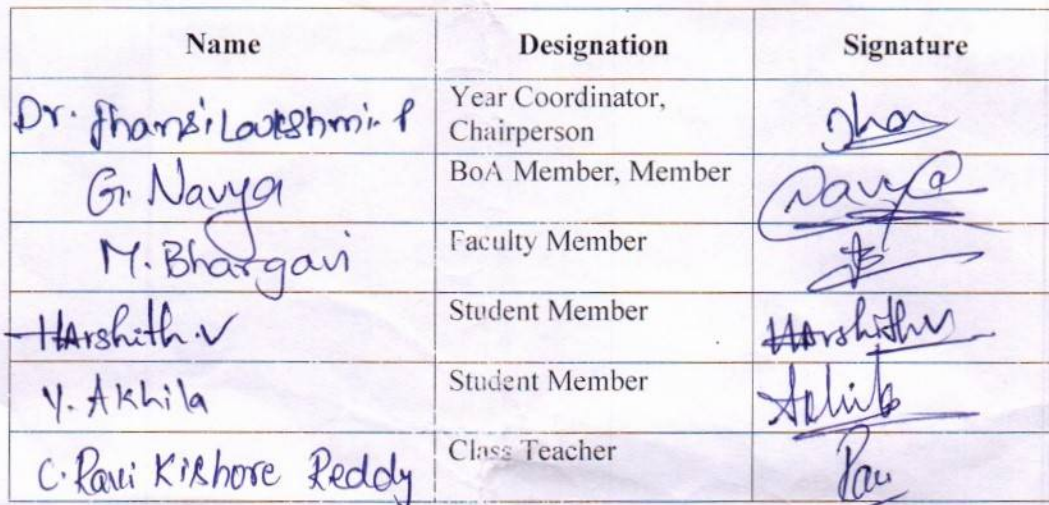 Name Designation Signature
Dr. Jhansi Lakshmi. P Year Coordinator, Chairperson Jhan
G. Navya BoA Member, Member Navya
M. Bhargavi Faculty Member
Harshith. V Student Member Harshith V
Y. Akhila Student Member Akhila
C. Ravi Kishore Reddy Class Teacher Ravi